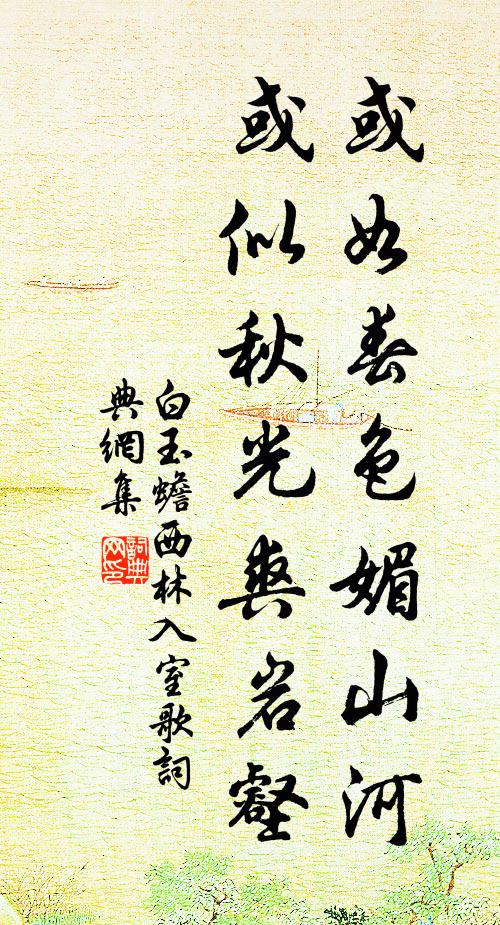 或如春色媚山河
或似秋光爽岩壑
白玉蟾西林入室歌詞
典網集
詞典
网印